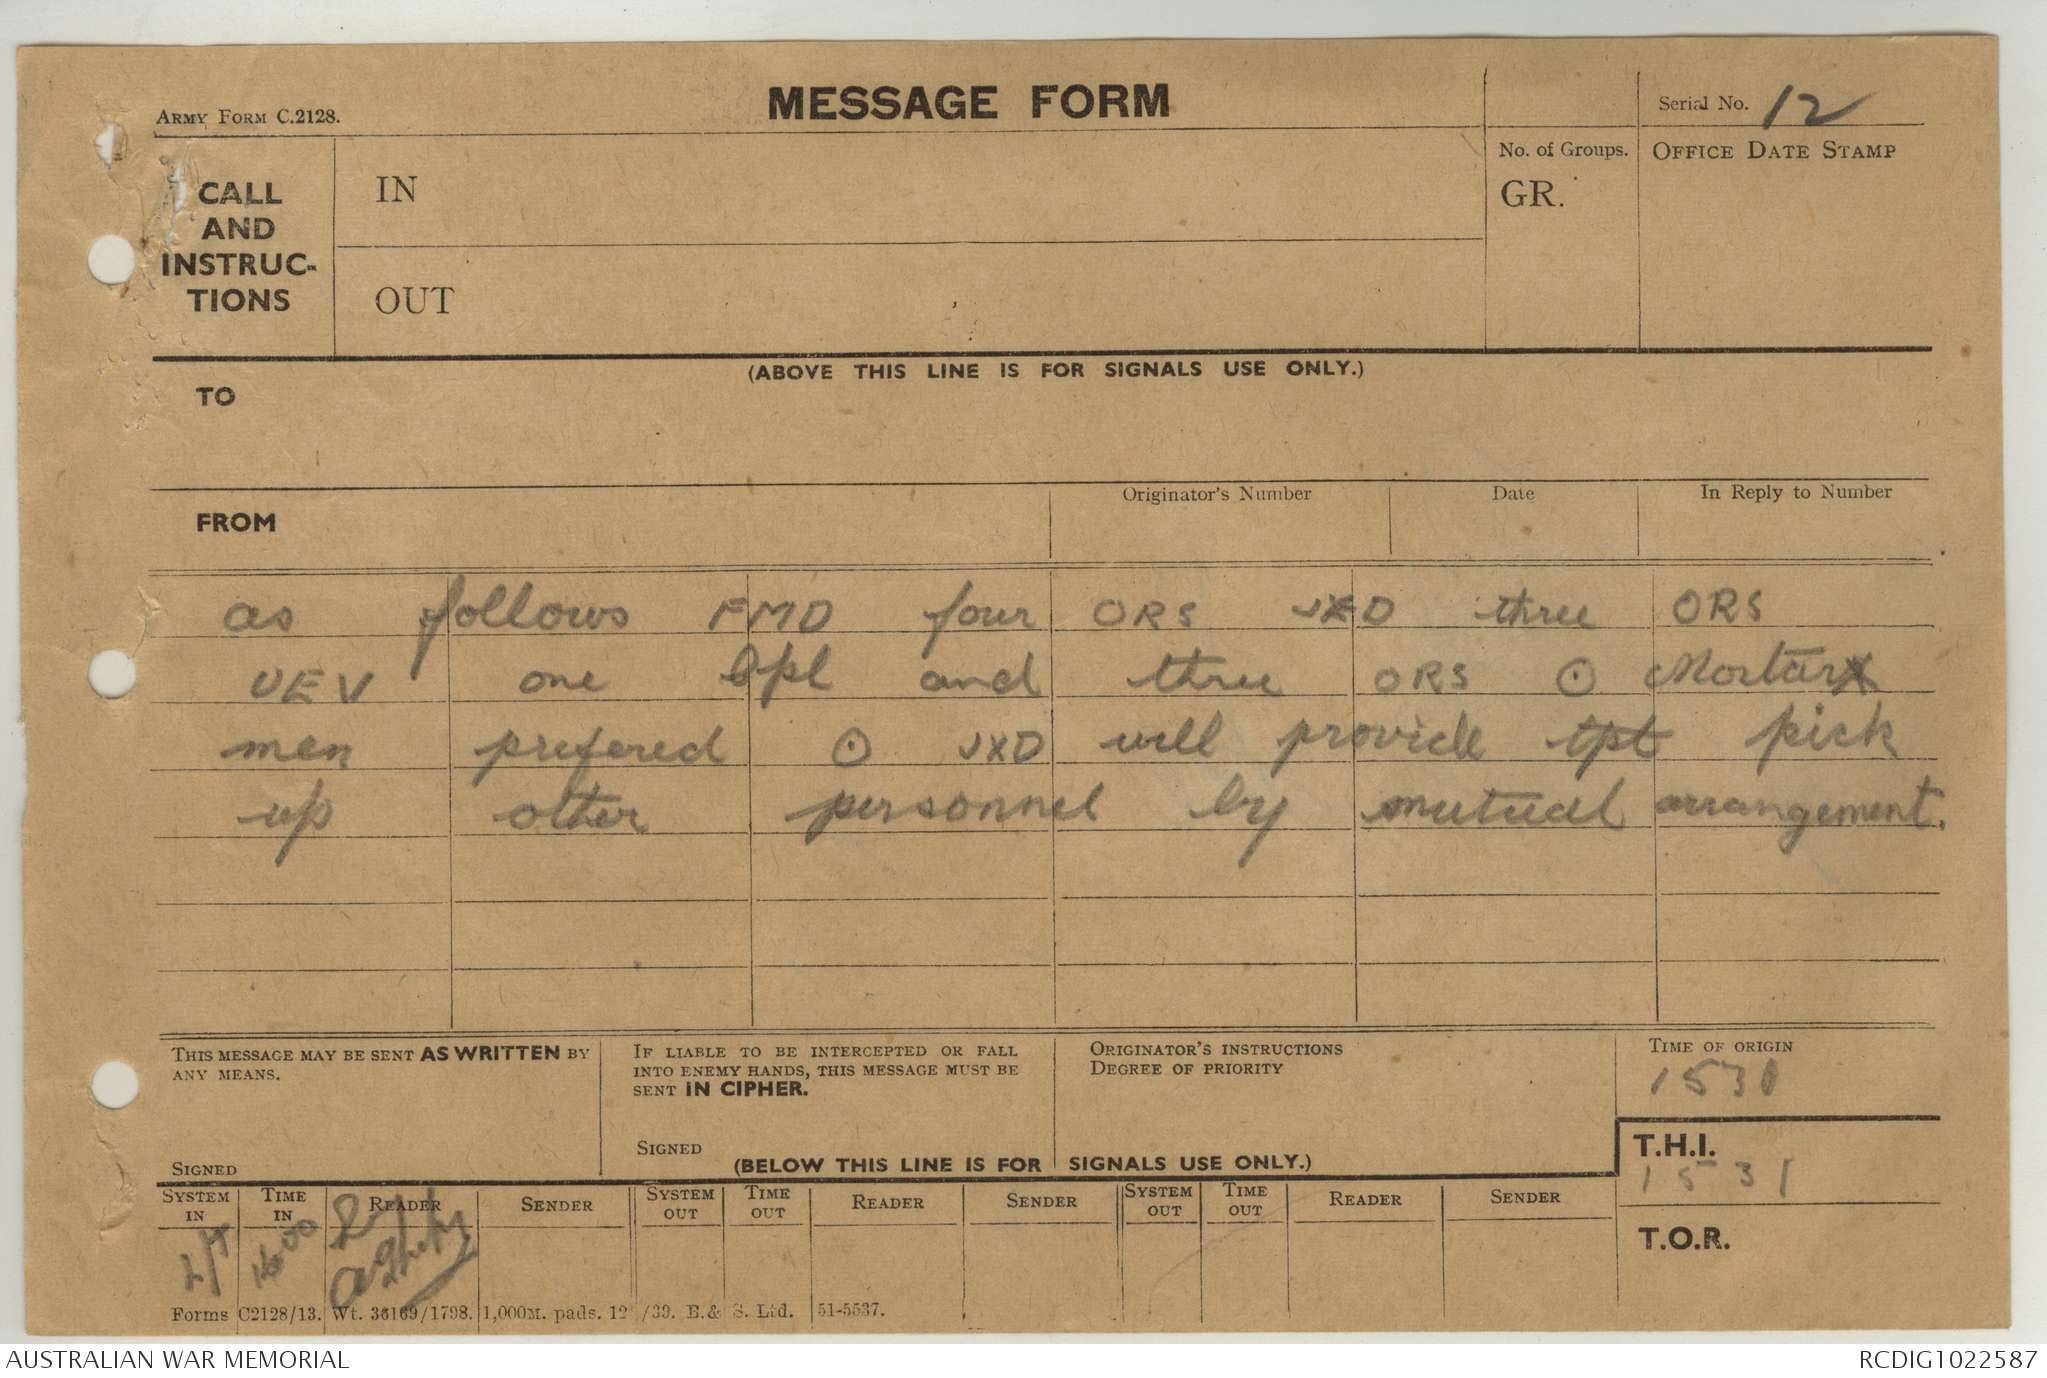 ARMY FORM C.2128.
MESSAGE FORM
Serial No. 12
CALL AND INSTRUC-TIONS
IN
OUT
No. of Groups.
GR.
OFFICE DATE STAMP
(ABOVE THIS LINE IS FOR SIGNALS USE ONLY.)
TO
FROM
Originator's Number
Date
In Reply to Number
as follows FMD four ORS JXD three ORS
UEV one bpl and three ORS ⊙ Mortar
men prefered ⊙ JXD will provide tpt pick
up other personnel by mutual arrangement.
THIS MESSAGE MAY BE SENT AS WRITTEN BY
ANY MEANS.
SIGNED
IF LIABLE TO BE INTERCEPTED OR FALL
INTO ENEMY HANDS, THIS MESSAGE MUST BE
SENT IN CIPHER.
SIGNED
ORIGINATOR'S INSTRUCTIONS
DEGREE OF PRIORITY
TIME OF ORIGIN
1531
(BELOW THIS LINE IS FOR SIGNALS USE ONLY.)
T.H.I.
1531
T.O.R.
SYSTEM IN
TIME IN
READER
SENDER
SYSTEM OUT
TIME OUT
READER
SENDER
SYSTEM OUT
TIME OUT
READER
SENDER
L/T 1600
Forms C2128/13. Wt. 36169/1798. 1,000M. pads. 12/39. E.& S. Ltd. 51-5537.
AUSTRALIAN WAR MEMORIAL
RCDIG1022587